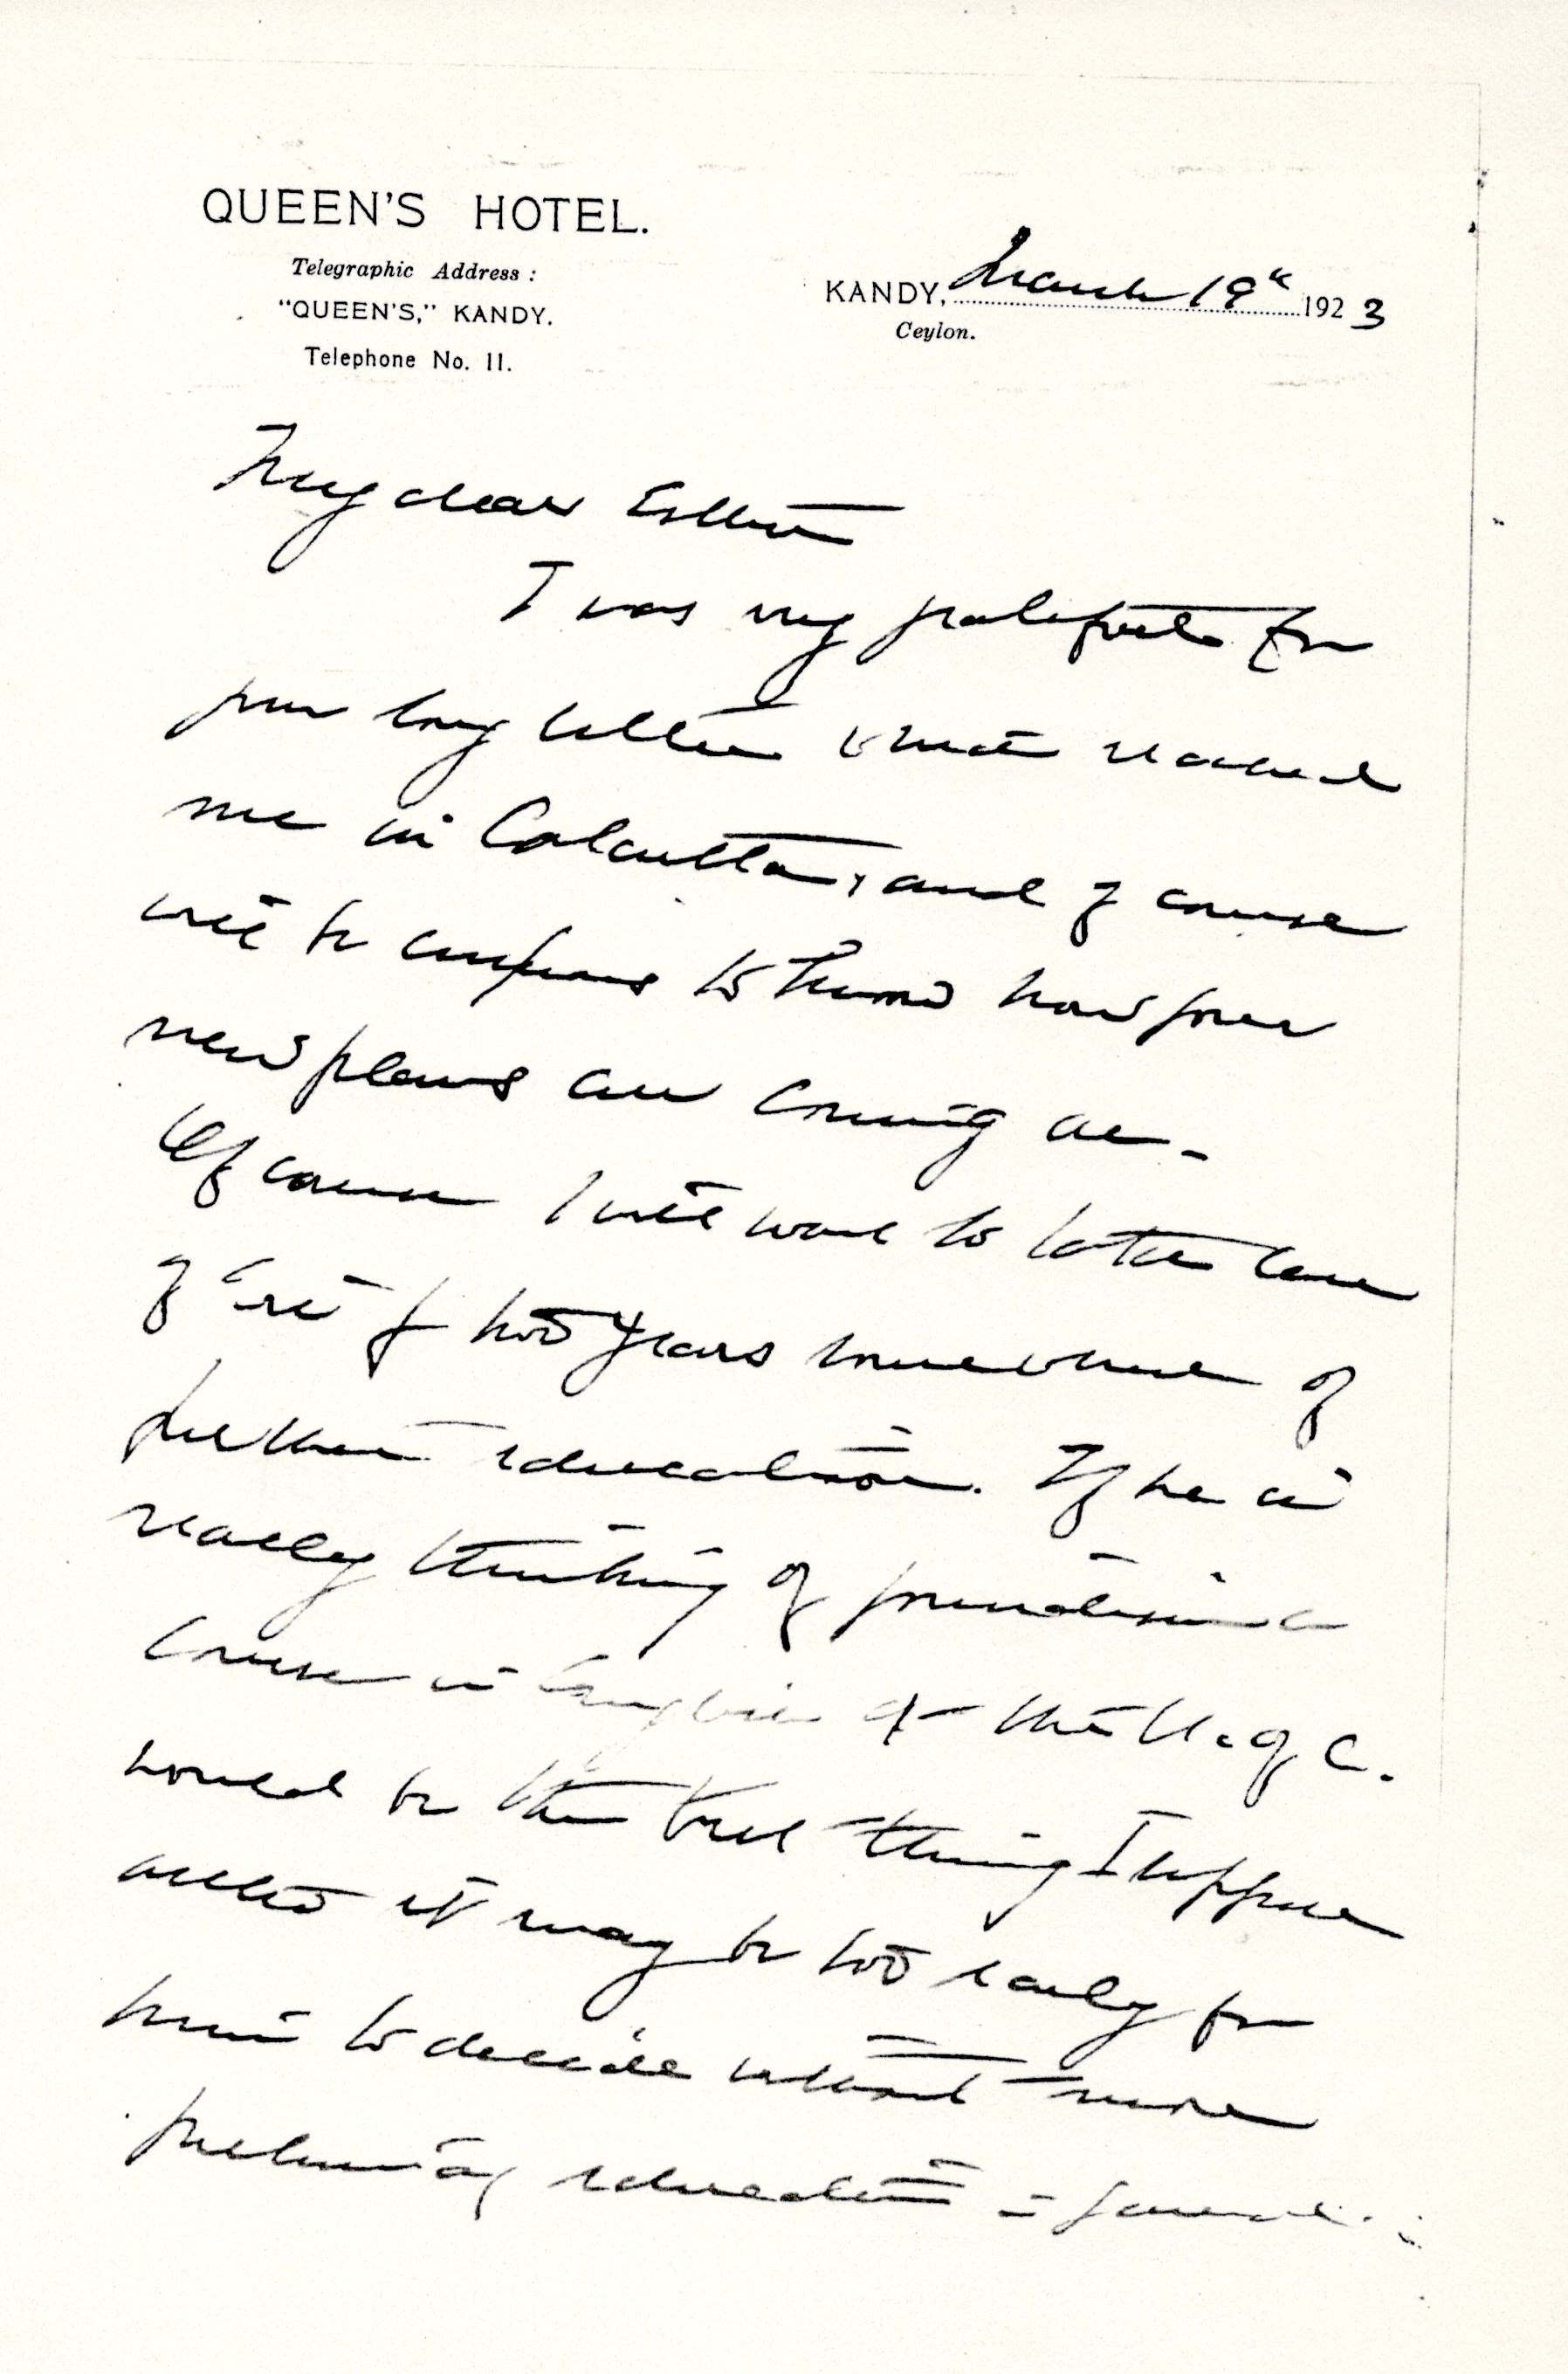 QUEEN'S HOTEL.
Telegraphic Address:
"QUEEN'S," KANDY.
Telephone No. 11.
KANDY, March 19th 1923
Ceylon.
My dear Esther
I was very grateful for
your long letter which reached
me in Calcutta, and of course
will be anxious to know how your
new plans are coming on -
Of course I will want to take care
of for two years somewhere of
further education. If he is
really thinking of journalism a
course in English at the U. of C.
would be the best thing I suppose
altho it may be too early for
him to decide without more
preliminary education - general